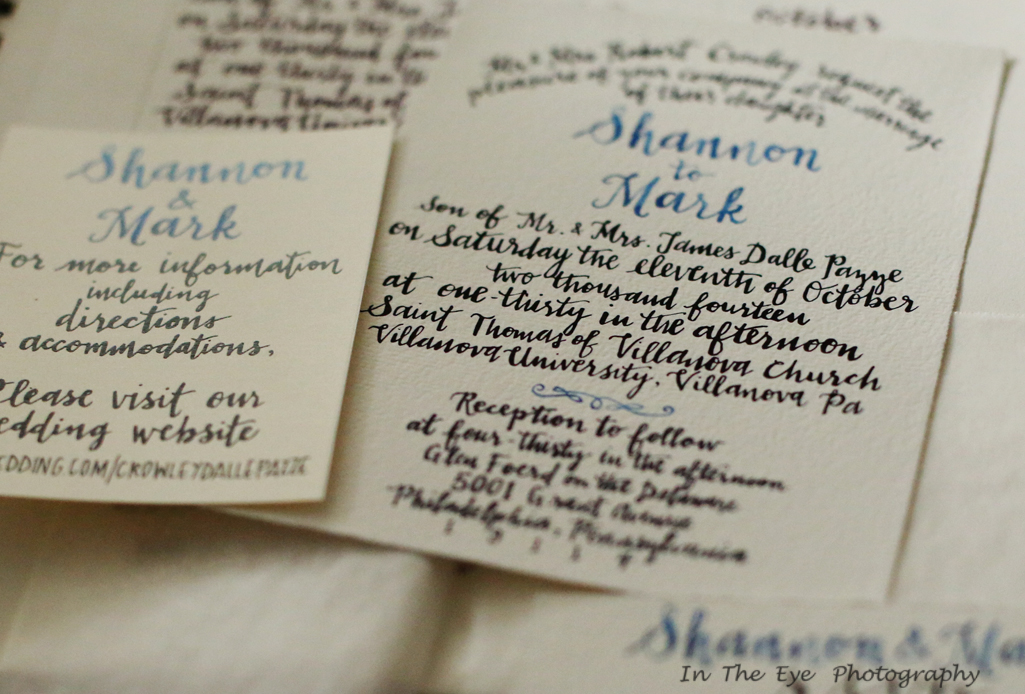 October
on Saturday the
two thousand
at one thirty in
Saint Thomas of
Villanova Univer
Mr. & Mrs. Robert Crowley request the
pleasure of your company at the marriage
of their daughter
Shannon
to
Mark
Son of Mr. & Mrs. James Dalle Pazze
on Saturday the eleventh of October
two thousand fourteen
at one-thirty in the afternoon
Saint Thomas of Villanova Church
Villanova University, Villanova Pa
Reception to follow
at four-thirty in the afternoon
Glen Foerd on the Delaware
5001 Grant Avenue
Philadelphia, Pennsylvania
Shannon
&
Mark
For more information
including
directions
& accommodations,
Please visit our
edding website
EDDING.COM/CROWLEYDALLEPAZZE
Shannon & Ma
In The Eye Photography